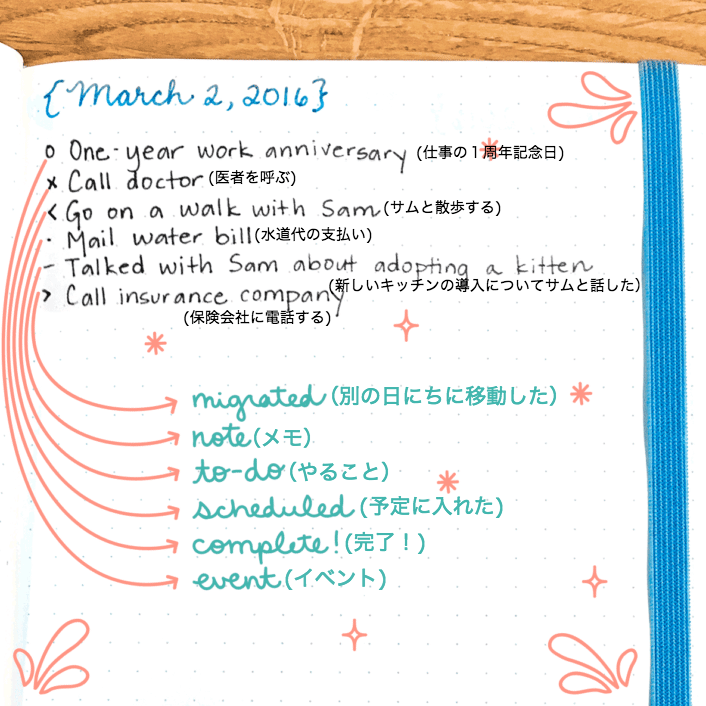 {March 2, 2016}
o One-year work anniversary (仕事の1周年記念日)
x Call doctor (医者を呼ぶ)
< Go on a walk with Sam (サムと散歩する)
· Mail water bill (水道代の支払い)
– Talked with Sam about adopting a kitten
(新しいキッチンの導入についてサムと話した)
> Call insurance company
(保険会社に電話する)
migrated (別の日にちに移動した)
note (メモ)
to-do (やること)
scheduled (予定に入れた)
complete! (完了！)
event (イベント)